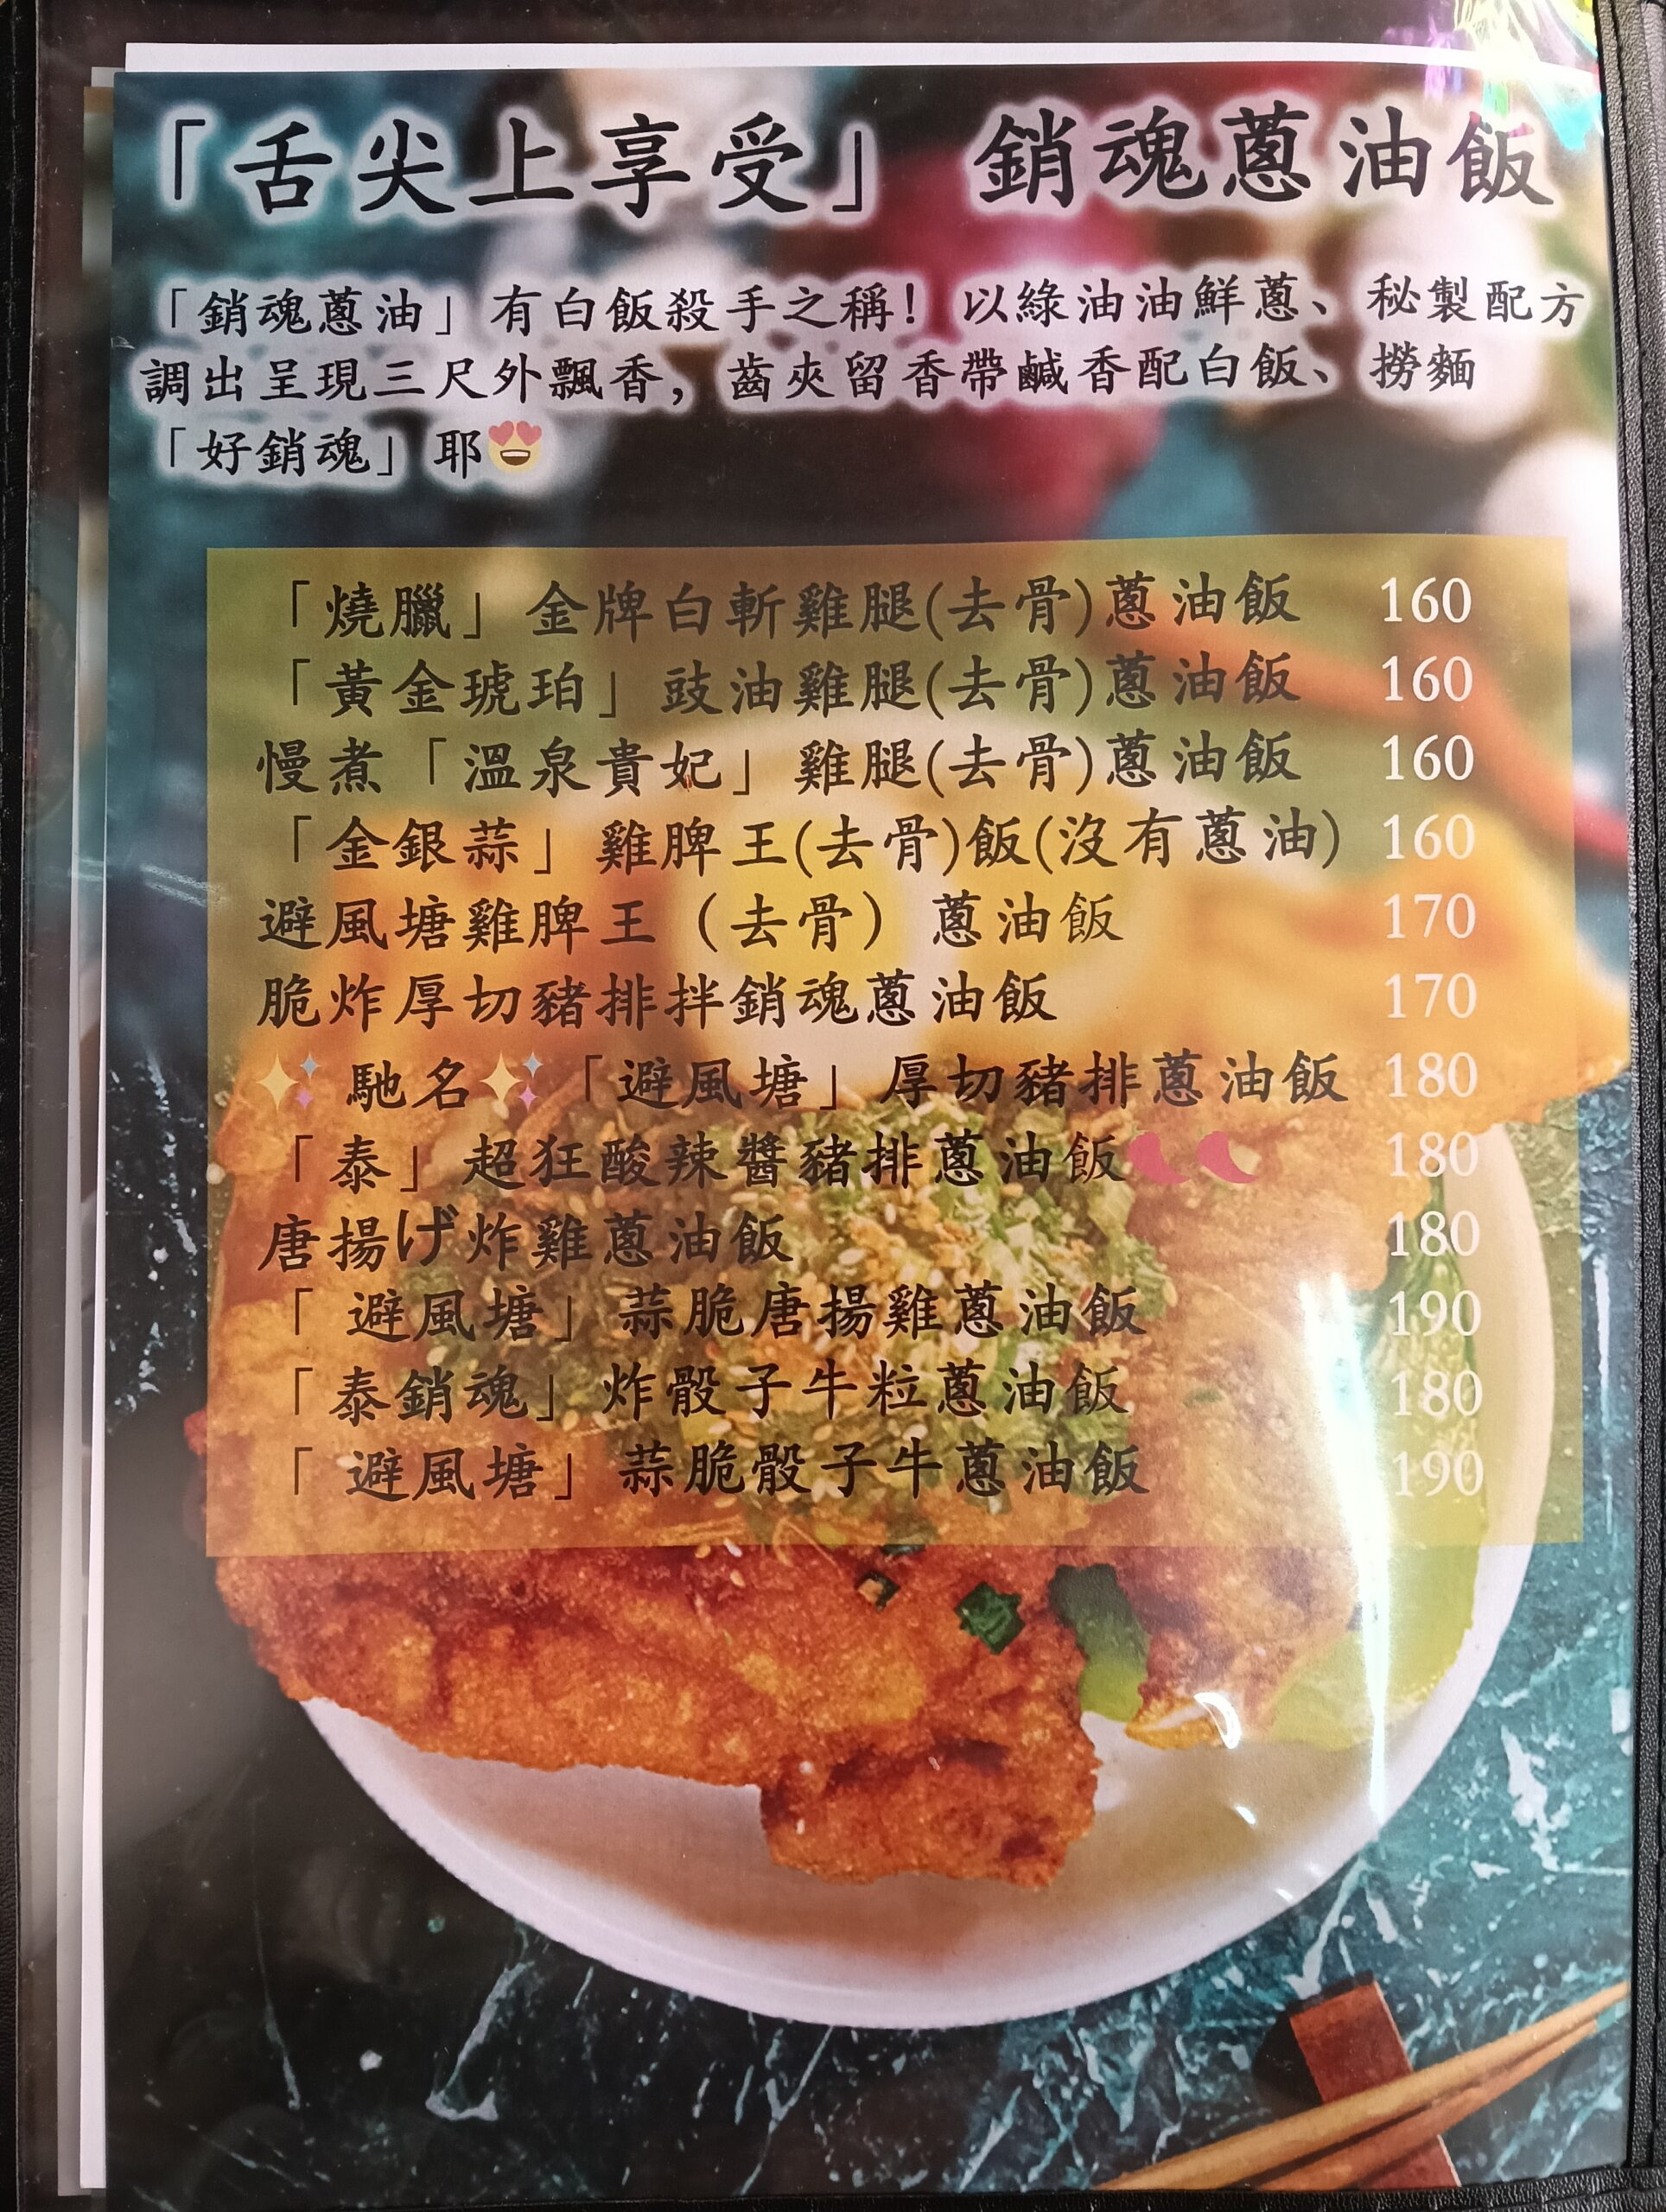 「舌尖上享受」 銷魂蔥油飯
「銷魂蔥油」有白飯殺手之稱！以綠油油鮮蔥、秘製配方
調出呈現三尺外飄香，齒夾留香帶鹹香配白飯、撈麵
「好銷魂」耶😍
「燒臘」金牌白斬雞腿(去骨)蔥油飯 160
「黃金琥珀」豉油雞腿(去骨)蔥油飯 160
慢煮「溫泉貴妃」雞腿(去骨)蔥油飯 160
「金銀蒜」雞脾王(去骨)飯(沒有蔥油) 160
避風塘雞脾王（去骨）蔥油飯 170
脆炸厚切豬排拌銷魂蔥油飯 170
✨馳名✨「避風塘」厚切豬排蔥油飯 180
「泰」超狂酸辣醬豬排蔥油飯🌶🌶 180
唐揚げ炸雞蔥油飯 180
「 避風塘」蒜脆唐揚雞蔥油飯 190
「泰銷魂」炸骰子牛粒蔥油飯 180
「 避風塘」蒜脆骰子牛蔥油飯 190